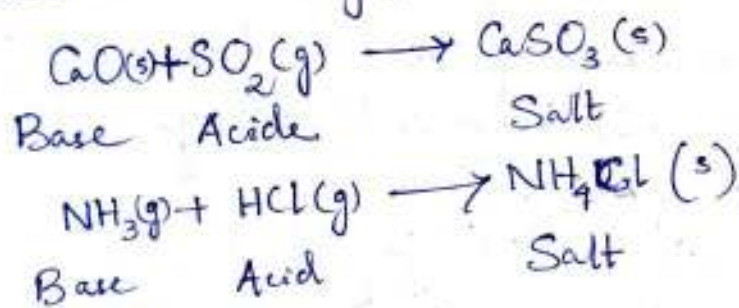 CaO(s)+SO₂(g) ⟶ CaSO₃(s)
Base Acide Salt
NH₃(g)+ HCl(g) ⟶ NH₄Cl (s)
Base Acid Salt